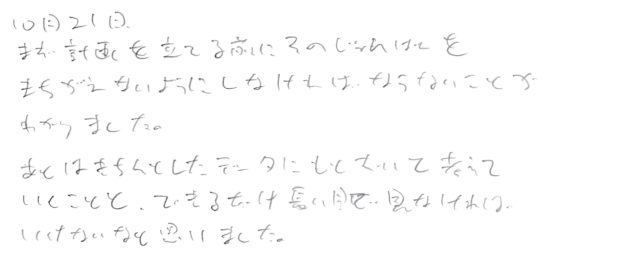 10月21日
まず計画を立てる前にそのじゅんばんを
まちがえないようにしなければならないことが
わかりました。
あとはきちんとしたデータにもとづいて考えて
いくことと、できるだけ長い目で見なければ
いけないなと思いました。